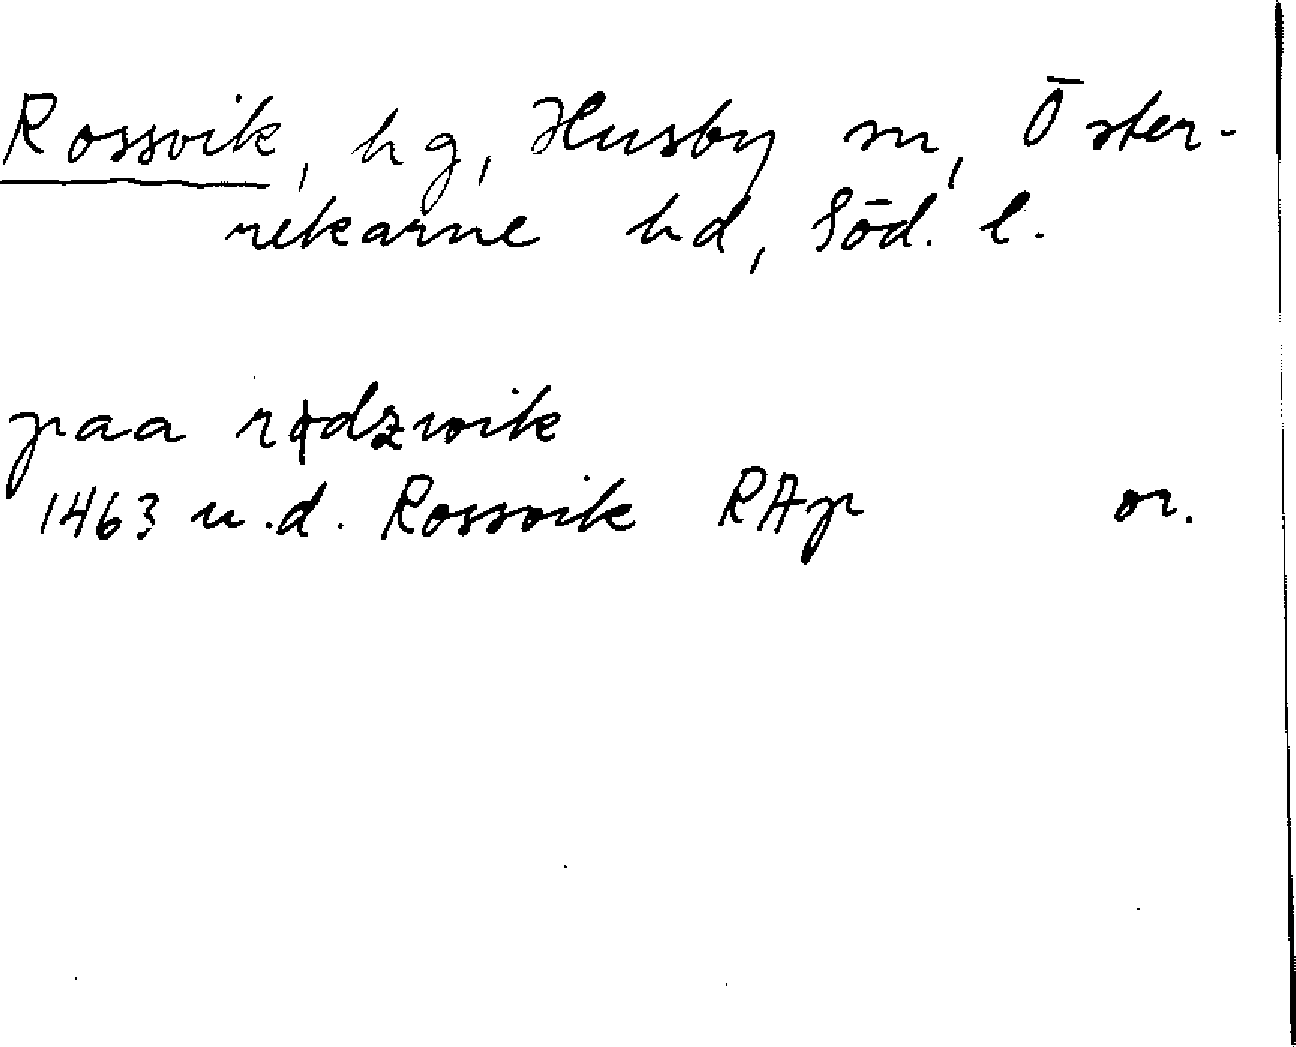 Rossvik, hg, Husby sn, Öster-
rekarne hd, Söd. l.
paa rødzwik
1463 u.d. Rossvik RAp or.